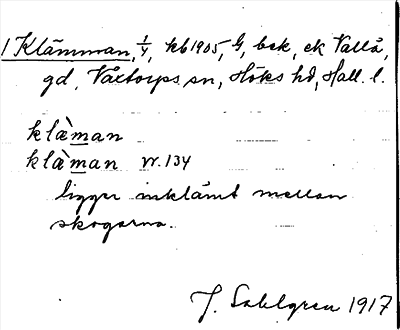 1 Klämman, 1/4, kb 1905, G, bek, ek Vallå,
gd, Våxtorps sn, Höks hd, Hall. l.
klä`man
klä`man W. 134
ligger inklämt mellan
skogarna.
J. Sahlgren 1917